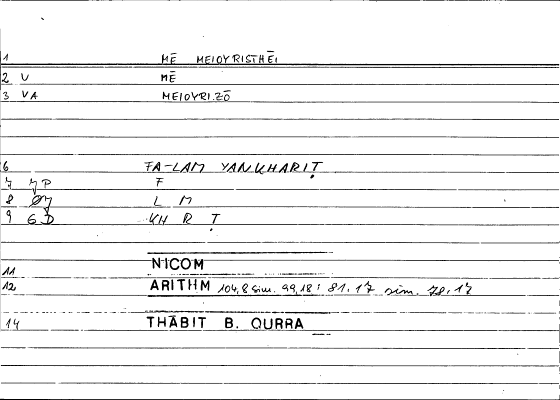 1 MĒ MEIOYRISTHĒI
2 V MĒ
3 VA MEIOYRI.ZŌ
6 FA-LAM YANKHARIṬ
7 7P F
8 L M
9 GD KH R Ṭ
11 NICOM
12 ARITHM 104,8 sim. 99,18 : 81.17 sim. 78.17
14 THĀBIT B. QURRA